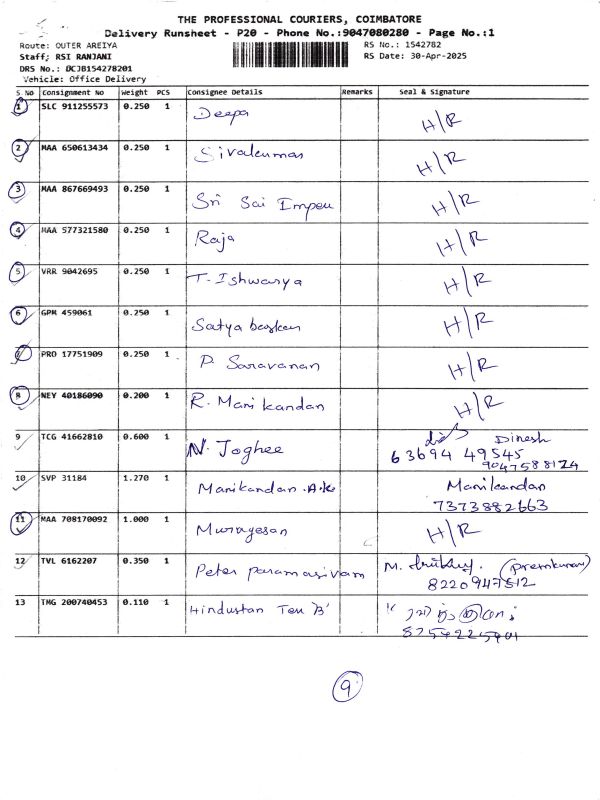 THE PROFESSIONAL COURIERS, COIMBATORE
Delivery Runsheet - P20 - Phone No.:9047080280 - Page No.:1
Route: OUTER AREIYA
RS No.: 1542782
Staff: RSI RANJANI
RS Date: 30-Apr-2025
DRS No.: DCJB154278201
Vehicle: Office Delivery
S No Consignment No Weight PCS Consignee Details Remarks Seal & Signature
1 SLC 911255573 0.250 1 Deepa H/R
2 MAA 650613434 0.250 1 Sivakumar H/R
3 MAA 867669493 0.250 1 Sri Sai Impeu H/R
4 MAA 577321580 0.250 1 Raja H/R
5 VRR 9042695 0.250 1 T. Ishwarya H/R
6 GPM 459061 0.250 1 Satya baskar H/R
7 PRO 17751909 0.250 1 P. Saravanan H/R
8 NEY 40186090 0.200 1 R. Manikandan H/R
9 TCG 41662810 0.600 1 N. Joghee Dinesh
63694 49545
9047588124
10 SVP 31184 1.270 1 Manikandan .A.K Manikandan
7373882663
11 MAA 708170092 1.000 1 Murugesan H/R
12 TVL 6162207 0.350 1 Peter paramasivam M. (Premkumar)
8220947512
13 TMG 200740453 0.110 1 Hindustan Tea 'B'
9